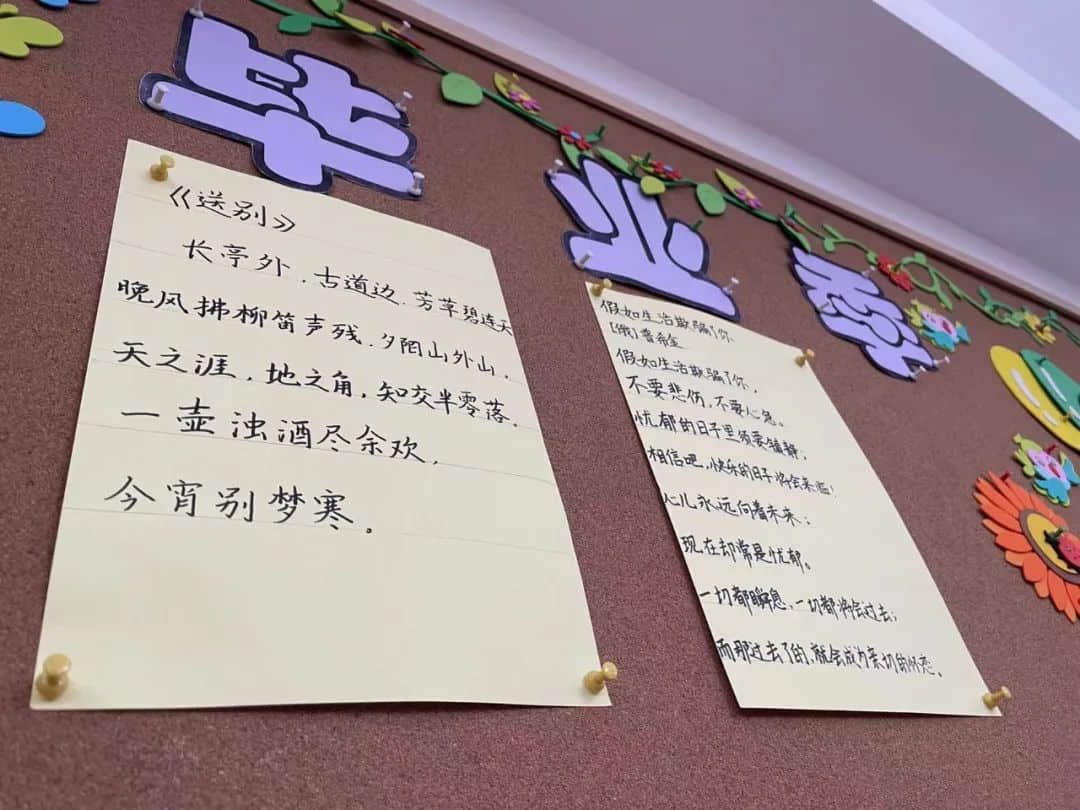 毕业季
《送别》
长亭外，古道边，芳草碧连天
晚风拂柳笛声残，夕阳山外山，
天之涯，地之角，知交半零落，
一壶浊酒尽余欢，
今宵别梦寒。
假如生活欺骗了你
[俄]普希金
假如生活欺骗了你，
不要悲伤，不要心急。
忧郁的日子里须要镇静；
相信吧，快乐的日子将会来临！
心儿永远向着未来；
现在却常是忧郁。
一切都瞬息，一切都将会过去；
而那过去了的，就会成为亲切的怀恋。